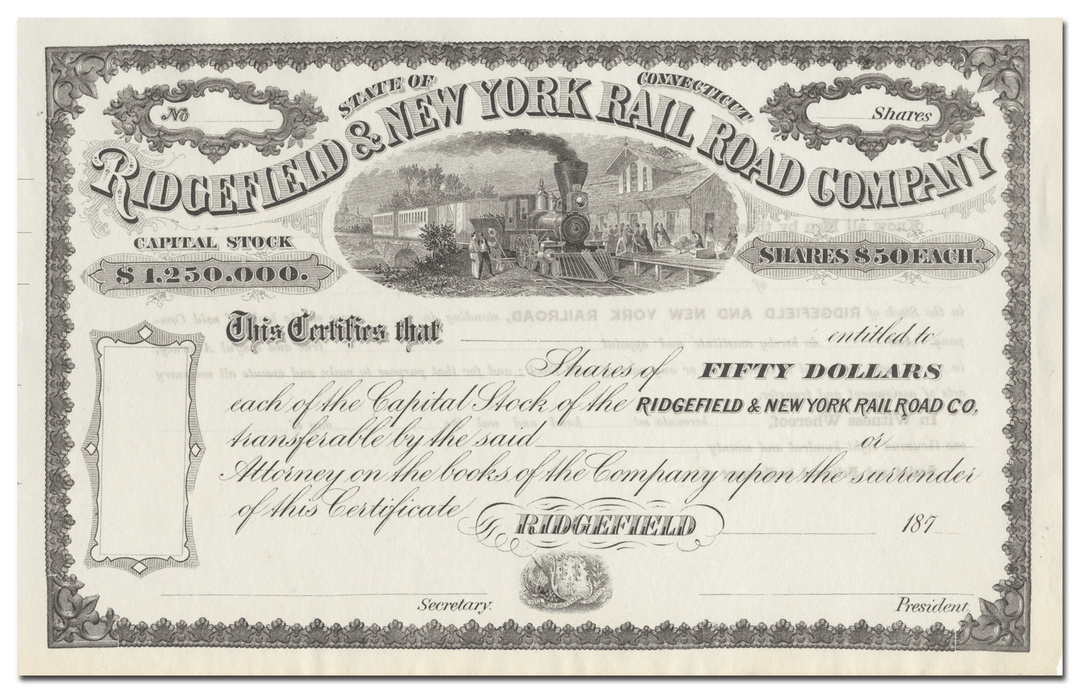 No
STATE OF CONNECTICUT
Shares
RIDGEFIELD & NEW YORK RAIL ROAD COMPANY
CAPITAL STOCK
$1,250.000.
SHARES $50 EACH.
This Certifies that entitled to
Shares of FIFTY DOLLARS
each of the Capital Stock of the RIDGEFIELD & NEW YORK RAILROAD CO.
transferable by the said or
Attorney on the books of the Company upon the surrender
of this Certificate
RIDGEFIELD 187
Secretary.
President.